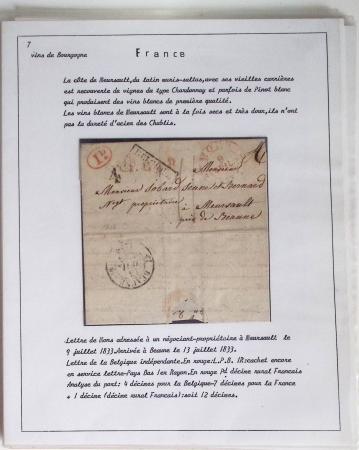 7
vins de Bourgogne
France
La côte de Meursault,du latin muris-saltus,avec ses vieilles carrières
est recouverte de vignes du type Chardonnay et parfois de Pinot blanc
qui produisent des vins blancs de première qualité.
Les vins blancs de Meursault sont à la fois secs et très doux,ils n'ont
pas la dureté d'acier des Chablis.
1R
Monsieur
Monsieur Jobard
Négt propriétaire
à Meursault
près de Beaune
Lettre de Mons adressée à un négociant-propriétaire à Meursault le
9 juillet 1833.Arrivée à Beaune le 13 juillet 1833.
Lettre de la Belgique indépendante.En rouge:L.P.B. 1R:cachet encore
en service lettre-Pays Bas 1er Rayon.En rouge Pd décime rural Francais
Analyse du port: 4 décimes pour la Belgique-7 décimes pour la France
+ 1 décime (décime rural Francais):soit 12 décimes.